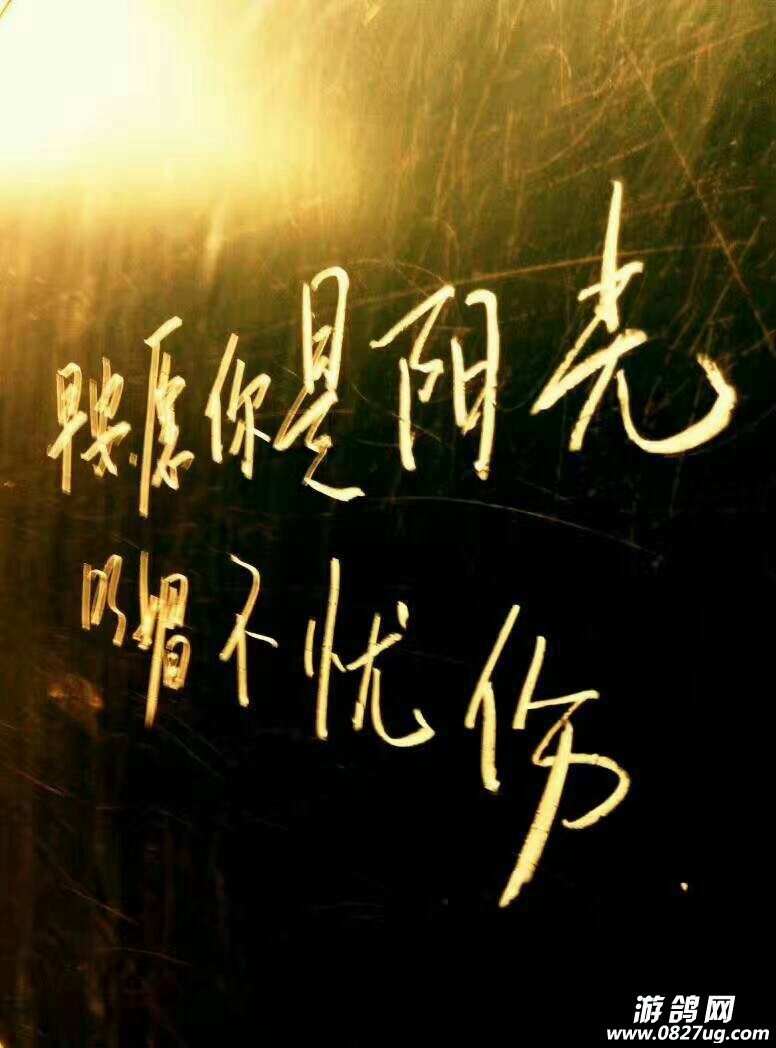 早安.愿你是阳光
明媚不忧伤.
游鸽网
www.0827ug.com